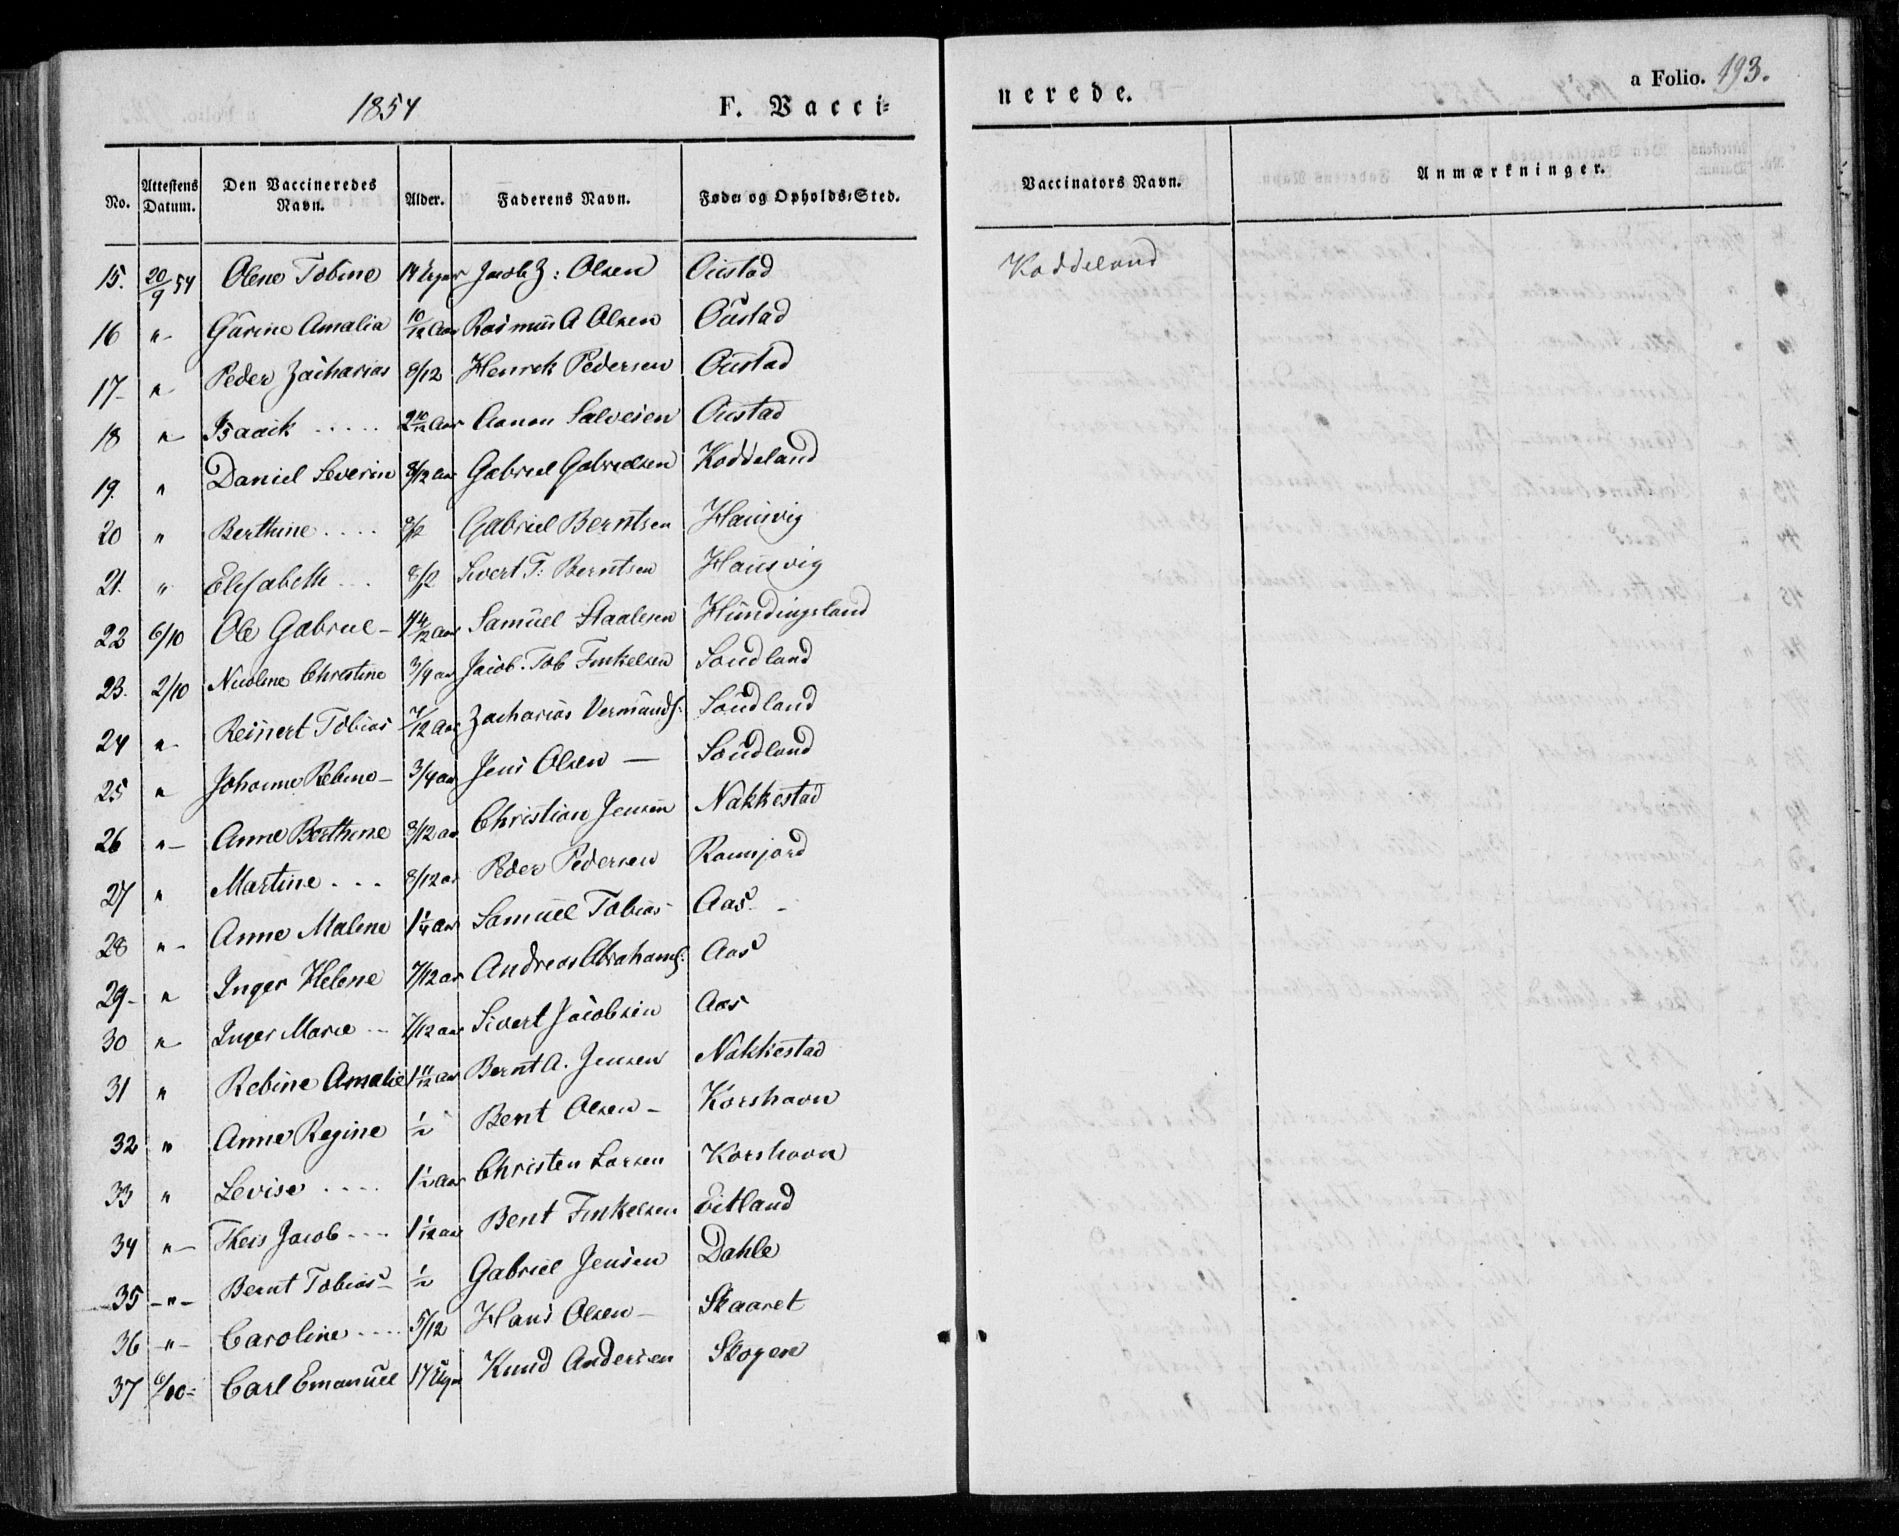 1854 F. Vacci=
nerede. a Folio. 193.
No. Attestens Datum. Den Vaccineredes Navn. Alder. Faderens Navn. Føde= og Opholds=Sted. Vaccinators Navn. Anmærkninger.
15. 20/9 54 Olene Tobine 14 Uger Jacob Z: Olsen Oustad Koddeland
16 " Gurine Amalia 10/12 Aar Rasmus A Olsen Oustad
17 " Peder Zacharias 8/12 Henrek Pedersen Oustad
18 " Isaack ..... 2 10/12 Aar Aanon Salvesen Oustad
19. " Daniel Severin 8/12 aar Gabriel Gabrielsen Koddeland
20 " Berthine .... 8/12 Gabriel Berntsen Hausvig
21. " Elisabeth ... 8/12 Sivert T: Berntsen Hausvig
22 6/10 Ole Gabriel - 1 4/12 aar Samuel Staalesen Hundingsland
23. 2/10 Nicoline Christine 3/4 aar Jacob. Tob Finkelsen Soudland
24 " Reinert Tobias 7/12 Aar Zacharias Vermunds: Soudland
25 " Johanne Rebine - 3/4 aar Jens Olsen — Soudland
26 " Anne Berthine 8/12 aar Christian Jensen Nakkestad
27 " Martine ... 8/12 ar Peder Pedersen Rounjord
28 " Anne Malene 1 1/4 aar Samuel Tobias Aas
29- " Inger Helene 7/12 ar Andreas Abrahams: Aas
30 " Inger Marie .. 7/12 aar Sivert Jacobsen Aas
31 " Rebine Amalie 1 11/12 aar Bernt A. Jensen Nakkestad
32 " Anne Regine 1/2 Bent Olsen - Korshavn
33 " Levise .... 1 1/2 Aar Christen Larsen Korshavn
34 " Theis Jacob ... 1 1/12 aar Bent Finkelsen Eitland
35 -"- Bernt Tobias - 1/2 Gabriel Jensen Dahle
36 -"- Caroline .... 5/12 Hans Olsen - Skaaret
37 6/10 = Carl Emanuel 17 Uger Knud Andersen Skogen